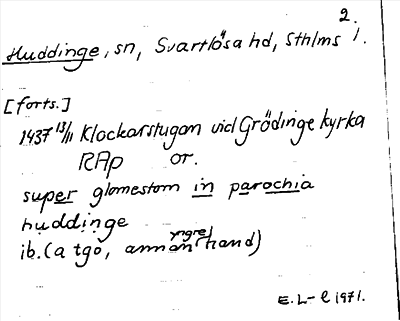 2.
Huddinge, sn, Svartlösa hd, Sthlms l.
[forts.]
1437 13/11 Klockarstugan vid Grödinge kyrka
RAp or.
super glomestom in parochia
huddinge
ib. (a tgo, annan yngre hand)
E. L-e 1971.